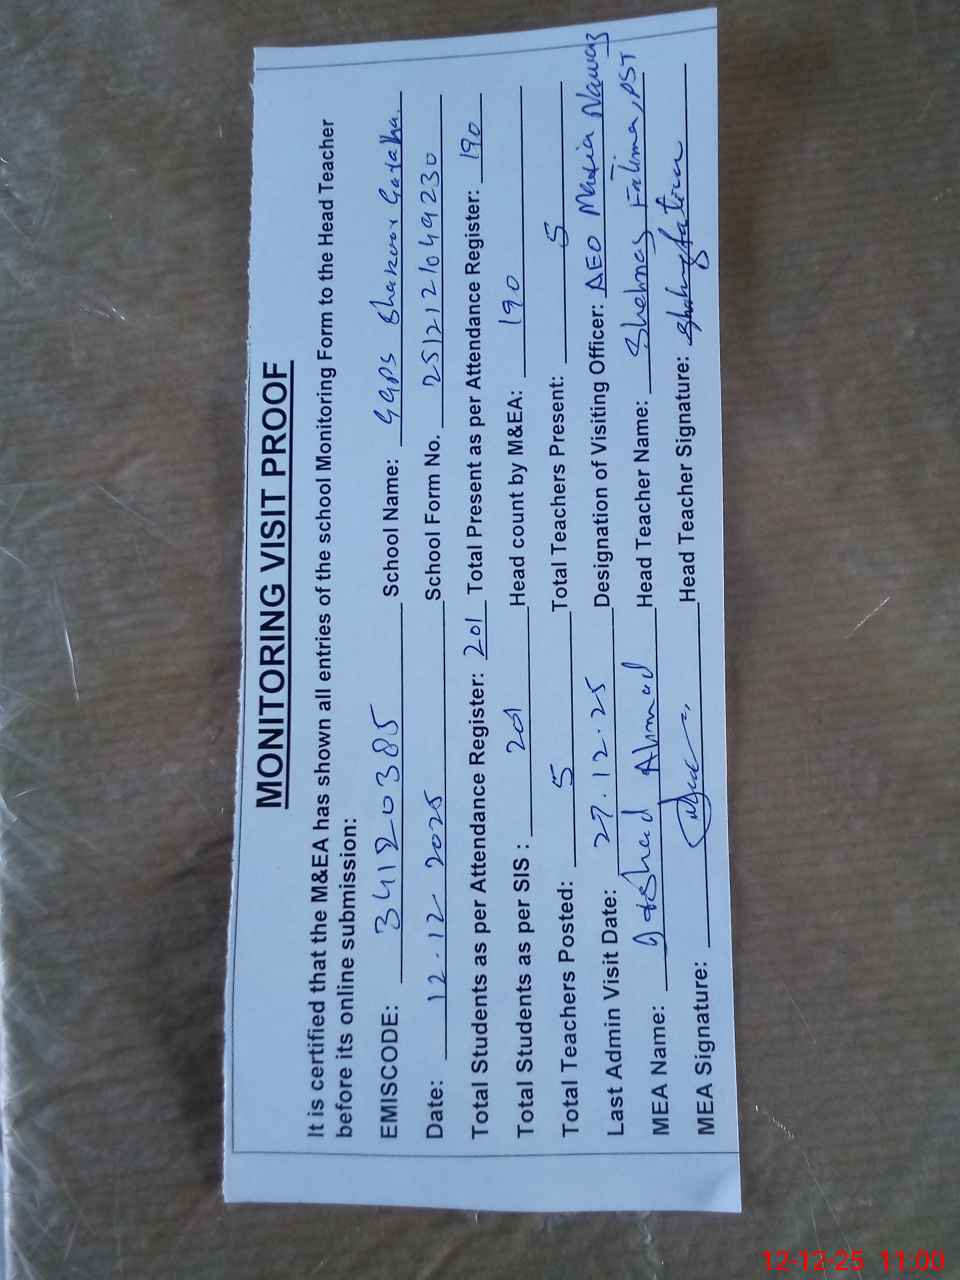 MONITORING VISIT PROOF
It is certified that the M&EA has shown all entries of the school Monitoring Form to the Head Teacher
before its online submission:
EMISCODE: 34120385 School Name: GGPS Shakoor
Date: 12.12.2025 School Form No. 2512121049230
Total Students as per Attendance Register: 201 Total Present as per Attendance Register: 190
Total Students as per SIS : 201 Head count by M&EA: 190
Total Teachers Posted: 5 Total Teachers Present: 5
Last Admin Visit Date: 27.12.25 Designation of Visiting Officer: AEO Nawaz
MEA Name: Ahmad Head Teacher Name: Shehnaz Fatima, PST
MEA Signature: Head Teacher Signature:
12-12-25 11:00